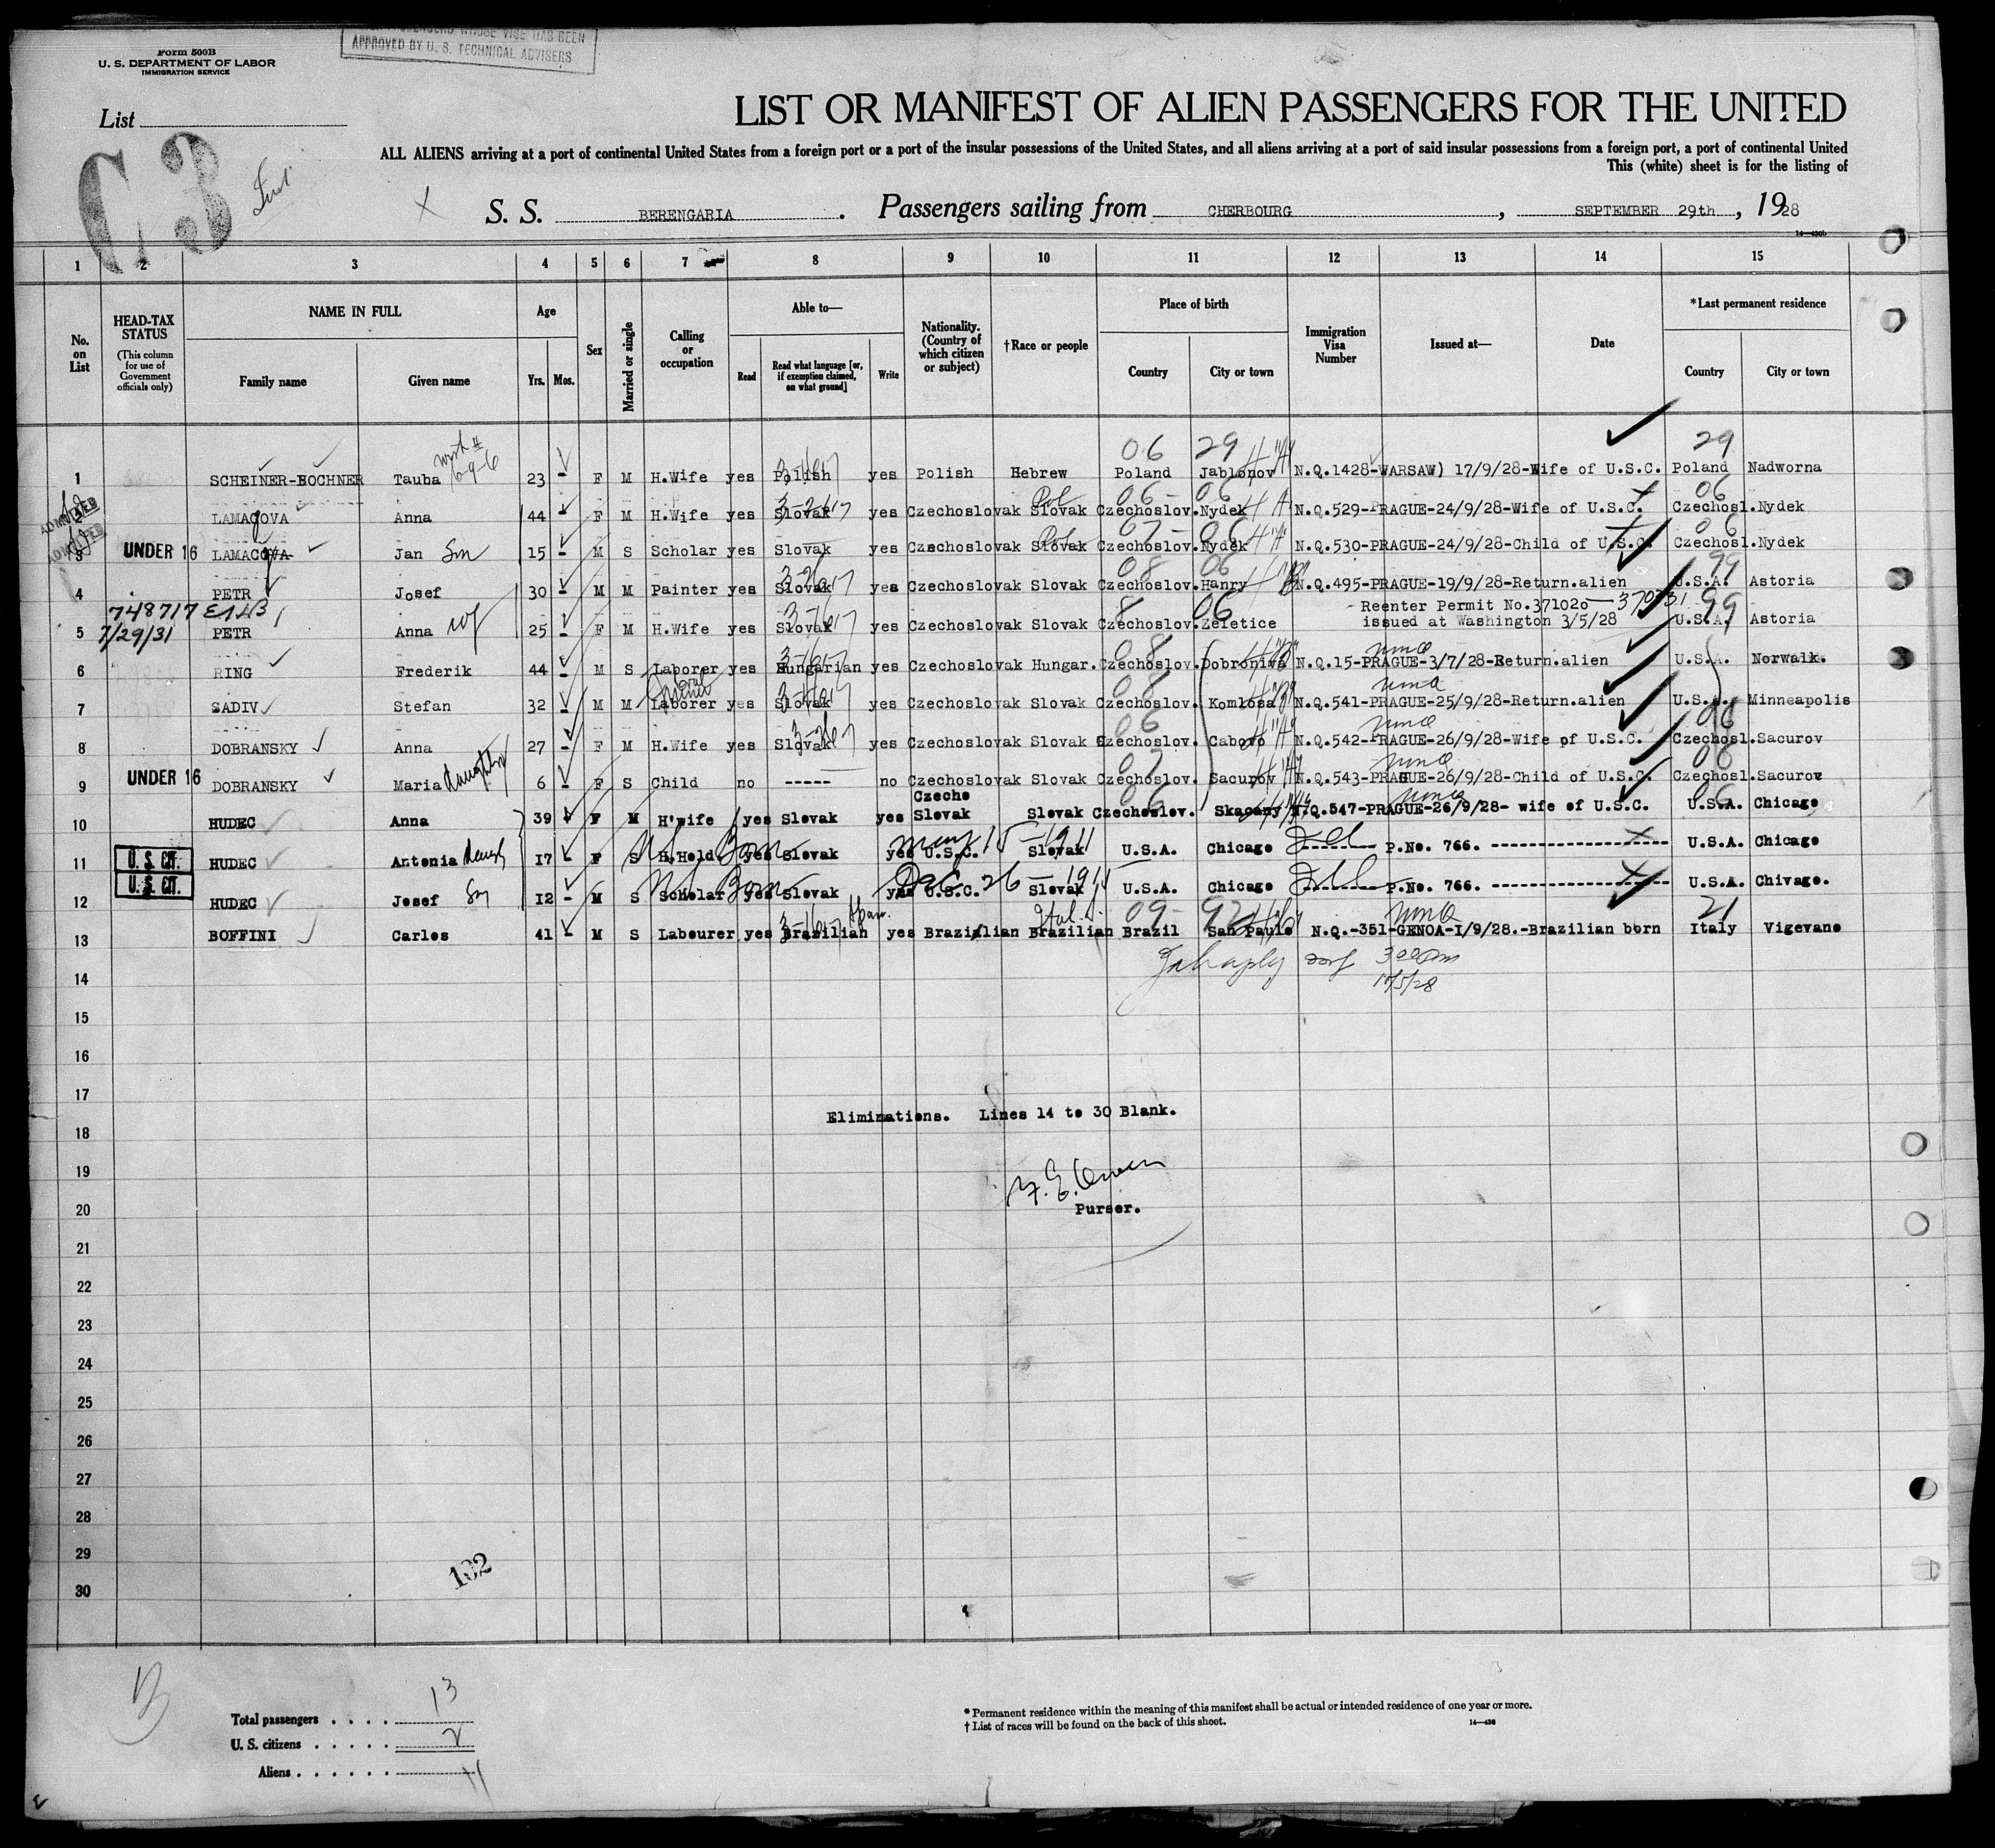 Form 500B
U. S. DEPARTMENT OF LABOR
IMMIGRATION SERVICE
WHOSE VISE HAS BEEN
APPROVED BY U. S. TECHNICAL ADVISERS
List
C 3
LIST OR MANIFEST OF ALIEN PASSENGERS FOR THE UNITED
ALL ALIENS arriving at a port of continental United States from a foreign port or a port of the insular possessions of the United States, and all aliens arriving at a port of said insular possessions from a foreign port, a port of continental United
This (white) sheet is for the listing of
S. S. BERENGARIA . Passengers sailing from CHERBOURG , SEPTEMBER 29th , 1928
1 2 3 4 5 6 7 8 9 10 11 12 13 14 15
No. on List
HEAD-TAX STATUS
(This column for use of Government officials only)
NAME IN FULL
Family name Given name
Age
Yrs. Mos.
Sex
Married or single
Calling or occupation
Able to—
Read
Read what language [or, if exemption claimed, on what ground]
Write
Nationality. (Country of which citizen or subject)
†Race or people
Place of birth
Country City or town
Immigration Visa Number
Issued at—
Date
*Last permanent residence
Country City or town
06 29 29
1 SCHEINER-BOCHNER Tauba 23 - F M H.Wife yes Polish yes Polish Hebrew Poland Jablonov N.Q.1428-WARSAW) 17/9/28-Wife of U.S.C. Poland Nadworna
ADMITTED
2 LAMAGOVA Anna 44 - F M H.Wife yes Slovak yes Czechoslovak Slovak Czechoslov. Nydek N.Q.529-PRAGUE-24/9/28-Wife of U.S.C. Czechosl. Nydek
ADMITTED
3 UNDER 16 LAMACOVA Jan Son 15 - M S Scholar yes Slovak yes Czechoslovak Slovak Czechoslov. Nydek N.Q.530-PRAGUE-24/9/28-Child of U.S.C. Czechosl. Nydek
4 PETR Josef 30 - M M Painter yes Slovak yes Czechoslovak Slovak Czechoslov. Hanry N.Q.495-PRAGUE-19/9/28-Return.alien U.S.A. Astoria
748717
Reenter Permit No.371020 - 370731
5 7/29/31 PETR Anna wf 25 - F M H.Wife yes Slovak yes Czechoslovak Slovak Czechoslov. Zeletice issued at Washington 3/5/28 U.S.A. Astoria
6 RING Frederik 44 - M S Laborer yes Hungarian yes Czechoslovak Hungar. Czechoslov. Dobroniva N.Q.15-PRAGUE-3/7/28-Return.alien U.S.A. Norwalk.
7 SADIV Stefan 32 - M M Laborer yes Slovak yes Czechoslovak Slovak Czechoslov. Komlosa N.Q.541-PRAGUE-25/9/28-Return.alien U.S.A. Minneapolis
8 DOBRANSKY Anna 27 - F M H.Wife yes Slovak yes Czechoslovak Slovak Czechoslov. Cabovo N.Q.542-PRAGUE-26/9/28-Wife of U.S.C. Czechosl. Sacurov
9 UNDER 16 DOBRANSKY Maria daughter 6 - F S Child no ----- no Czechoslovak Slovak Czechoslov. Sacurov N.Q.543-PRAGUE-26/9/28-Child of U.S.C. Czechosl. Sacurov
10 HUDEC Anna 39 - F M H'wife yes Slovak yes Czecho Slovak Slovak Czechoslov. Skacany N.Q.547-PRAGUE-26/9/28- wife of U.S.C. U.S.A. Chicago
US Born 1911
11 U. S. CIT. HUDEC Antonia 17 - F S H.Hold yes Slovak yes U.S.C. Slovak U.S.A. Chicago P.No. 766. U.S.A. Chicago
US Born Dec 26 -
12 U. S. CIT. HUDEC Josef Son 12 - M S Scholar yes Slovak yes U.S.C. Slovak U.S.A. Chicago P.No. 766. U.S.A. Chivago.
13 BOFFINI Carlos 41 - M S Labourer yes Brazilian yes Brazilian Brazilian Brazil San Paulo N.Q.-351-GENOA-1/9/28.-Brazilian born Italy Vigevano
14
15
16
17
Eliminations. Lines 14 to 30 Blank.
18
19
20
Purser.
21
22
23
24
25
26
27
28
29
132
30
Total passengers . . . . 13
U. S. citizens . . . . . 2
Aliens . . . . . . 11
* Permanent residence within the meaning of this manifest shall be actual or intended residence of one year or more.
† List of races will be found on the back of this sheet.
14—430